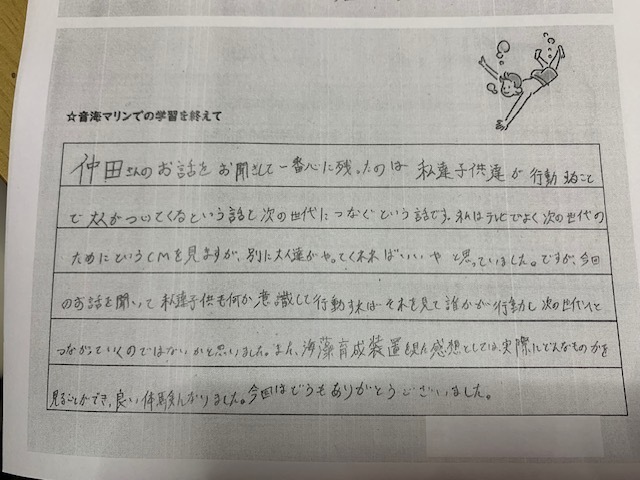 ☆音海マリンでの学習を終えて
仲田さんのお話をお聞きして一番心に残ったのは 私達子供達が行動すること
で大人がついてくるという話と次の世代につなぐという話です。私はテレビでよく次の世代の
ためにというCMを見ますが、別に大人達がやってくれればいいや と思っていました。ですが、今回
のお話を聞いて 私達子供も何か意識して行動すれば それを見て誰かが行動し 次の世代へと
つながっていくのではないかと思いました。また、海藻育成装置を見た感想としては、実際にどんなものかを
見ることができ、良い体験になりました。今回はどうもありがとうございました。